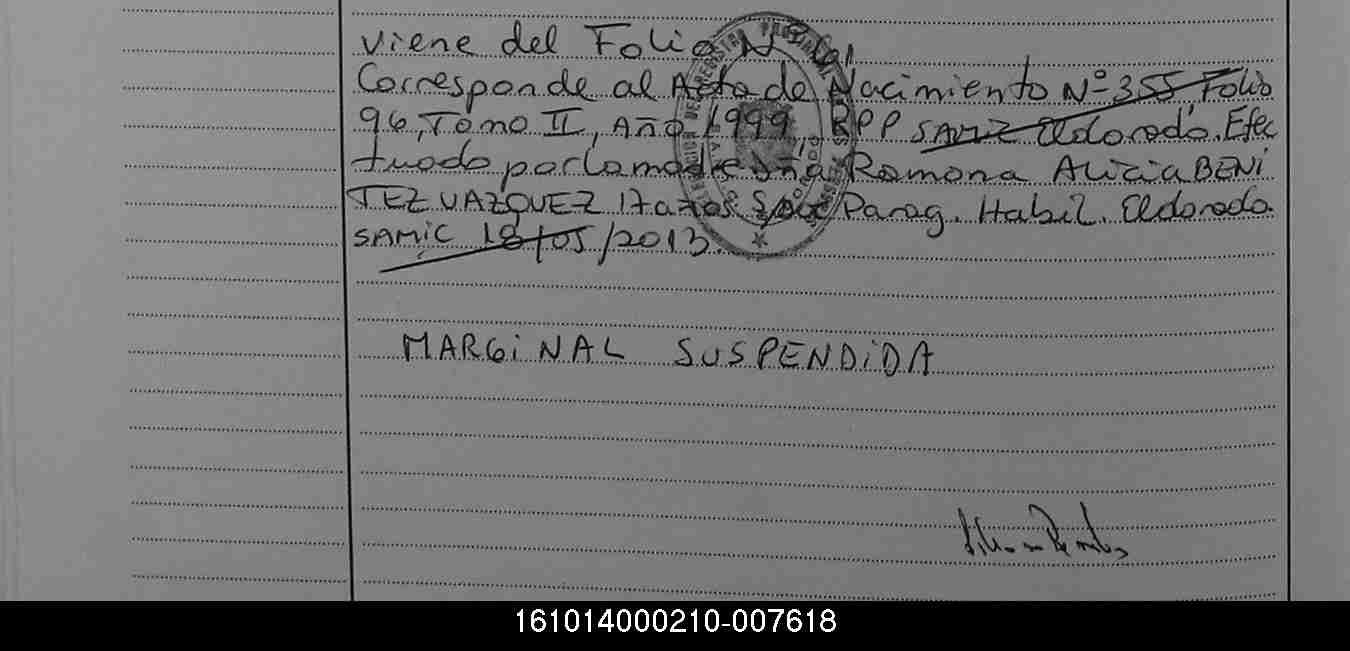 Viene del Folio Nº
Corresponde al Acta de Nacimiento Nº 355, Folio
96, Tomo II, Año 1999, RPP SAMIC Eldorado. Efec
tuado por la madre Dña Ramona Alicia BENI
TEZ VAZQUEZ 17 años Parag. Habil. Eldorado
SAMiC 18/05/2013.
MARGiNAL SUSPENDiDA
161014000210-007618